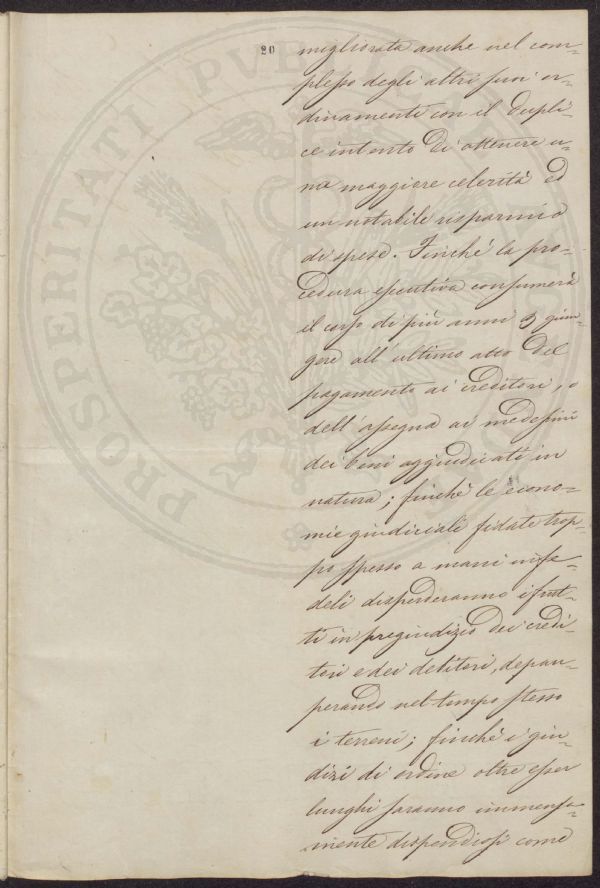 20
migliorata anche nel com-
plesso degli altri suoi or-
dinamenti con il dupli-
ce intento di ottenere u-
na maggiore celerità ed
un notabile risparmio
di spese. Finché la pro-
cedura esecutiva consumerà
il corso di più anni a giun-
gere all'ultimo atto del
pagamento ai creditori, o
dell'assegna ai medesimi
dei beni aggiudicati in
natura; finché le econo-
mie giudiciali fidate trop-
po spesso a mani infe-
deli disperderanno i frut-
ti in pregiudizio dei credi-
tori e dei debitori, depau-
perando nel tempo stesso
i terreni; finché i giu-
dizi di ordine oltre esser
lunghi saranno immensa-
mente dispendiosi come
PROSPERITATI PUBLICAE